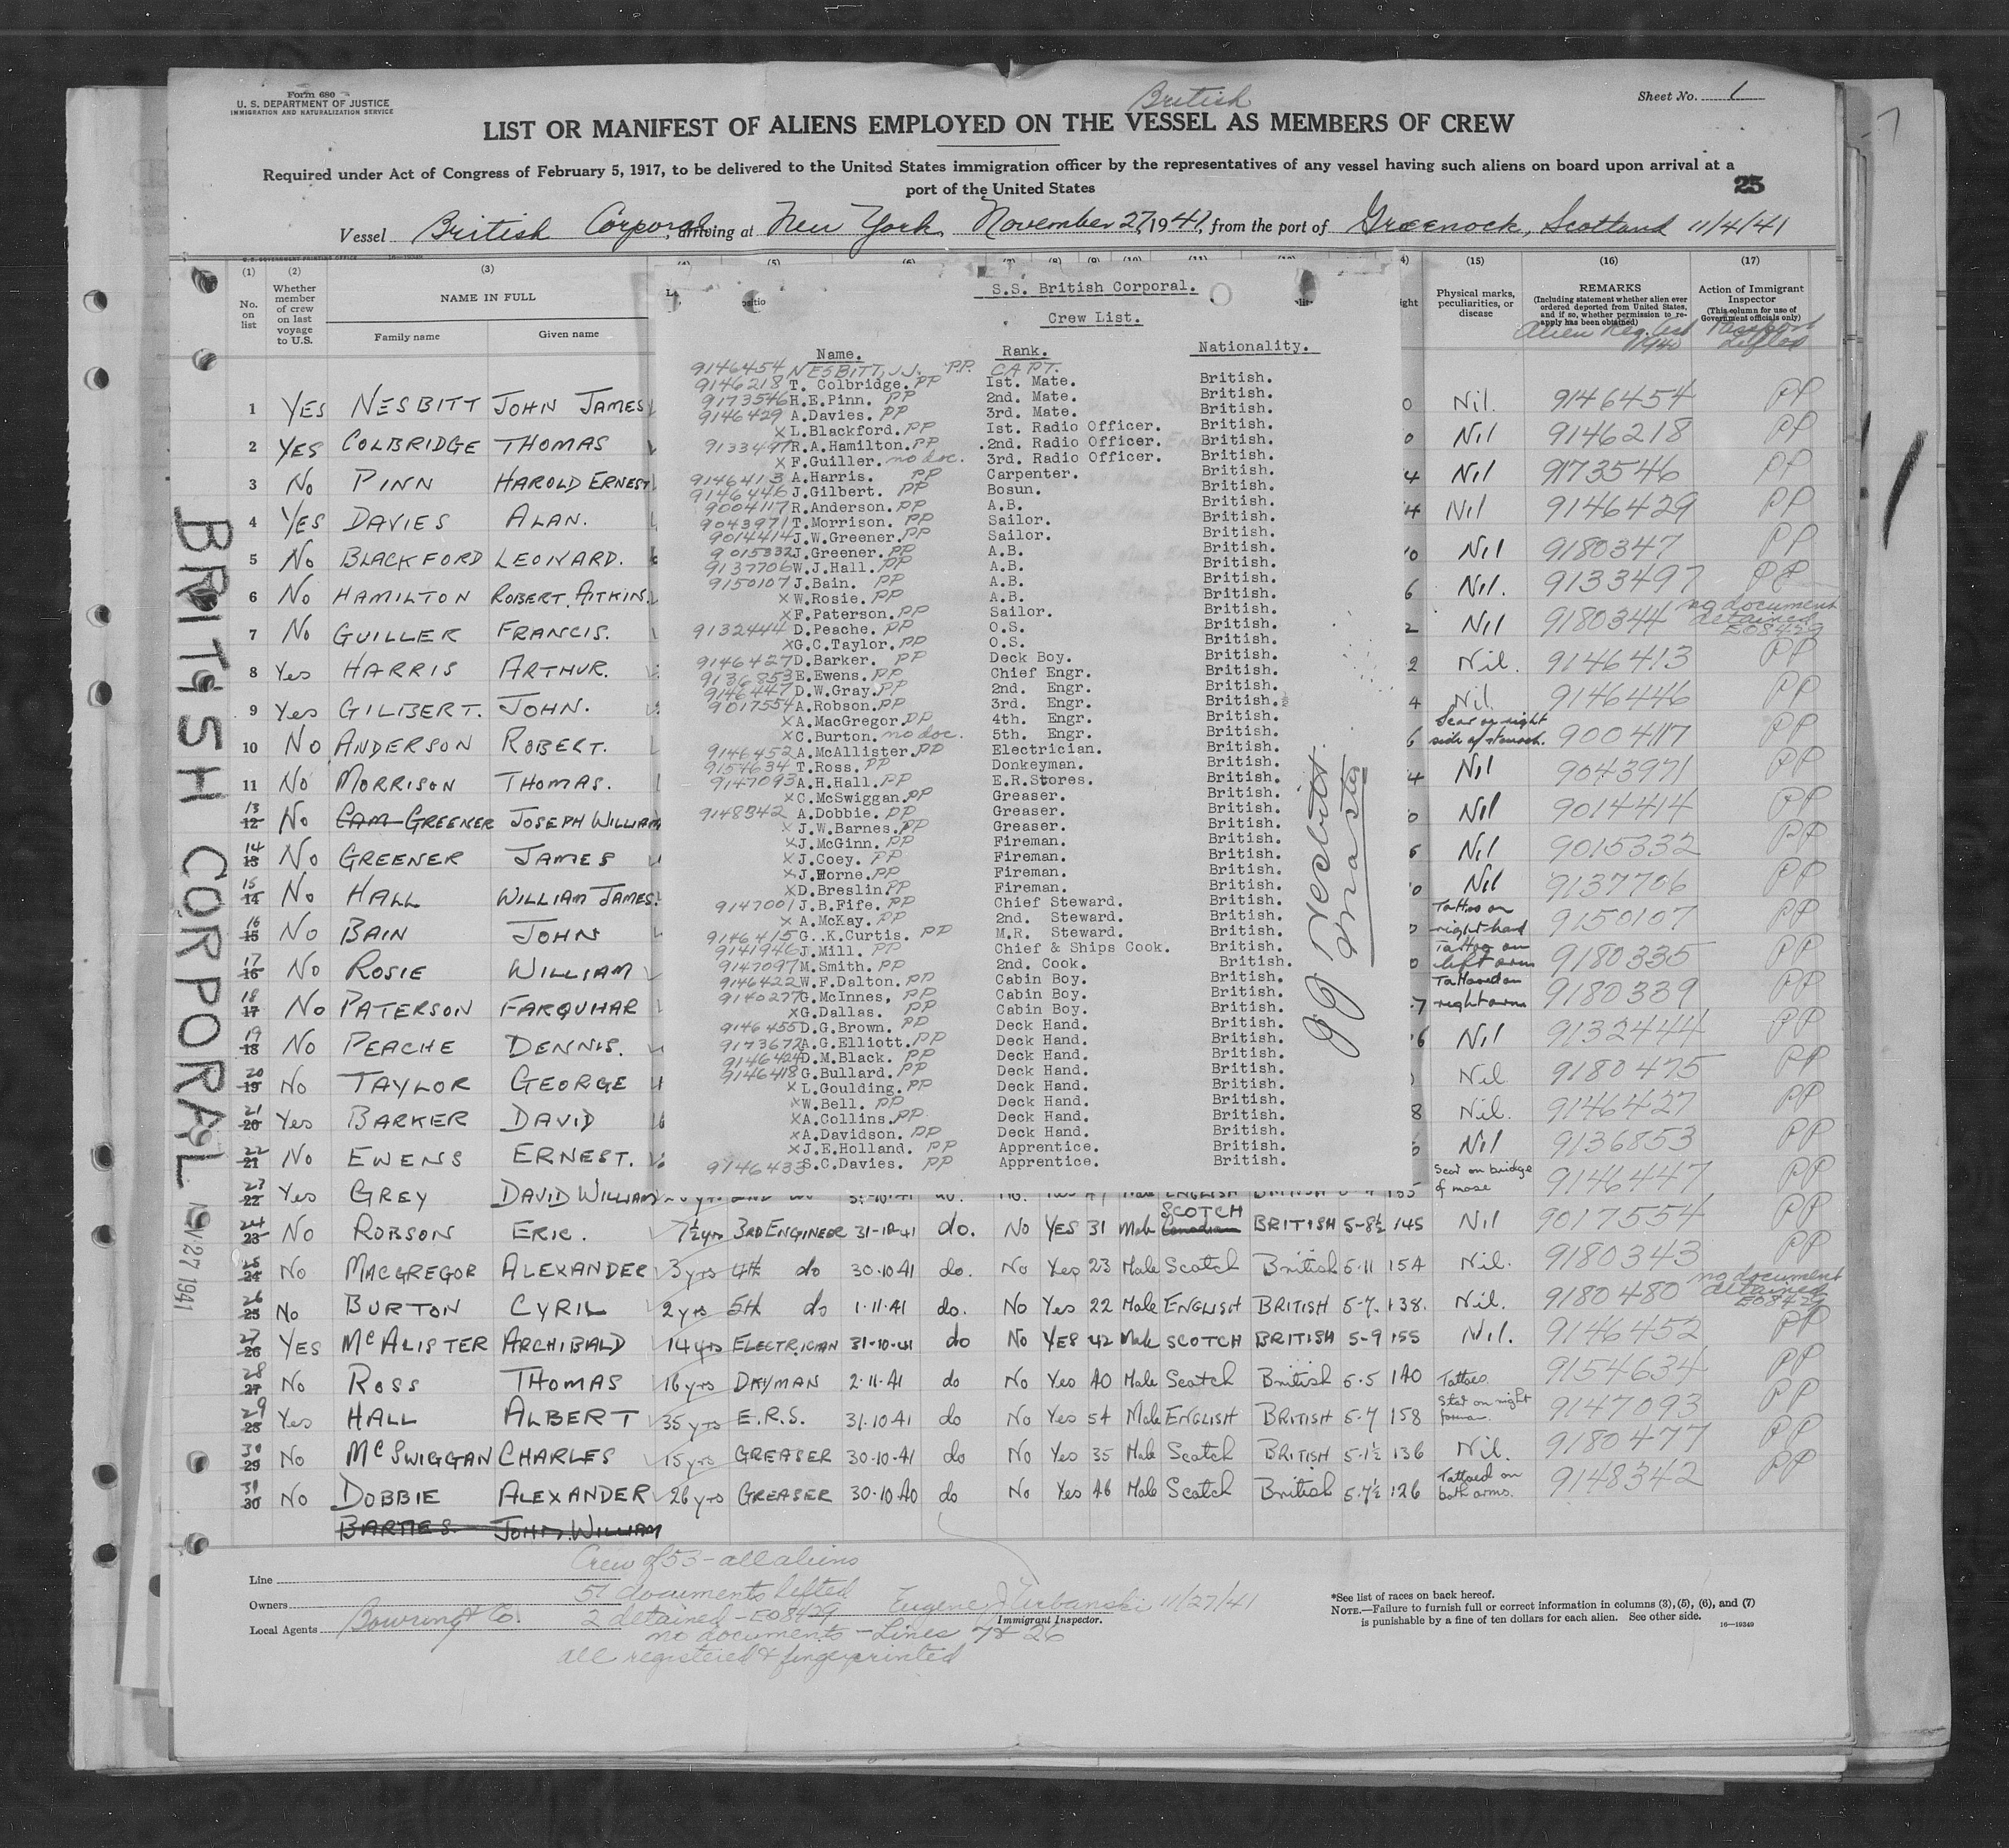 Form 680
U. S. DEPARTMENT OF JUSTICE
IMMIGRATION AND NATURALIZATION SERVICE
British
Sheet No. 1
LIST OR MANIFEST OF ALIENS EMPLOYED ON THE VESSEL AS MEMBERS OF CREW
Required under Act of Congress of February 5, 1917, to be delivered to the United States immigration officer by the representatives of any vessel having such aliens on board upon arrival at a
port of the United States
25
Vessel British Corporal, arriving at New York November 27, 1941, from the port of Greenock, Scotland 11/4/41
(1) (2) (3) (15) (16) (17)
No. on list
Whether member of crew on last voyage to U.S.
NAME IN FULL
Family name Given name
Physical marks, peculiarities, or disease
REMARKS
(Including statement whether alien ever ordered deported from United States, and if so, whether permission to re-apply has been obtained)
Action of Immigrant Inspector
(This column for use of Government officials only)
1 YES NESBITT JOHN JAMES Nil. 9146454 PP
2 YES COLBRIDGE THOMAS Nil 9146218 PP
3 No PINN HAROLD ERNEST Nil 9173546 PP
4 YES DAVIES ALAN. Nil 9146429 PP
5 No BLACKFORD LEONARD. Nil 9180347 PP
6 No HAMILTON ROBERT. AITKIN. Nil. 9133497 PP
7 No GUILLER FRANCIS. Nil 9180344 no document detained E08429
8 Yes HARRIS ARTHUR. Nil. 9146413 PP
9 Yes GILBERT. JOHN. Nil. 9146446 PP
10 No ANDERSON ROBERT. Scar on right side of stomach. 9004117 PP
11 No MORRISON THOMAS. Nil 9043971 PP
13 12 No CAM GREENER JOSEPH WILLIAM Nil 9014414 PP
14 13 No GREENER JAMES Nil 9015332 PP
15 14 No HALL WILLIAM JAMES. Nil 9137706 PP
16 15 No BAIN JOHN Tattoo on right hand 9150107 PP
17 16 No ROSIE WILLIAM Tattoo on left arm 9180335 PP
18 17 No PATERSON FARQUHAR right arm 9180339 PP
19 18 No PEACHE DENNIS. Nil 9132444 PP
20 19 No TAYLOR GEORGE Nil 9180475 PP
21 20 Yes BARKER DAVID Nil. 9146427 PP
22 21 No EWENS ERNEST. Nil 9136853 PP
23 22 Yes GREY DAVID WILLIAM Scar on bridge of nose 9146447 PP
24 23 No ROBSON ERIC. 7½ yrs 3RD ENGINEER 31-10-41 do. No YES 31 Male SCOTCH Canadian BRITISH 5-8½ 145 Nil 9017554 PP
25 24 No MACGREGOR ALEXANDER 3 yrs 4th do 30.10.41 do. No Yes 23 Male Scotch British 5.11 154 Nil. 9180343 PP
26 25 No BURTON CYRIL 2 yrs 5th do 1.11.41 do. No Yes 22 Male ENGLISH BRITISH 5-7. 138. Nil. 9180480 no document detained E08429
27 26 YES McALISTER ARCHIBALD 14 yrs ELECTRICIAN 31-10-41 do No YES 42 Male SCOTCH BRITISH 5-9 155 Nil. 9146452 PP
28 27 No ROSS THOMAS 16 yrs DKYMAN 2.11.41 do No Yes 40 Male Scotch British 5.5 140 Tattoos 9154634 PP
29 28 Yes HALL ALBERT 35 yrs E.R.S. 31.10.41 do No Yes 54 Male ENGLISH BRITISH 5-7 158 9147093 PP
30 29 No McSWIGGAN CHARLES 15 yrs GREASER 30-10.41 do No Yes 35 Male Scotch BRITISH 5-1½ 136 Nil. 9180477 PP
31 30 No DOBBIE ALEXANDER 26 yrs GREASER 30.10 40 do No Yes 46 Male Scotch British 5.7½ 126 Tattooed on both arms. 9148342 PP
BARNES. JOHN. WILLIAM
S.S. British Corporal.
Crew List.
Name. Rank. Nationality.
9146454 NESBITT, J.J. PP. CAPT.
9146218 T. Colbridge. PP Ist. Mate. British.
9173546 H.E.Pinn. PP 2nd. Mate. British.
9146429 A.Davies. PP 3rd. Mate. British.
x L.Blackford. PP Ist. Radio Officer. British.
9133497 R.A.Hamilton. PP 2nd. Radio Officer. British.
x F.Guiller. no doc. 3rd. Radio Officer. British.
9146413 A.Harris. PP Carpenter. British.
9146446 J.Gilbert. PP Bosun. British.
9004117 R.Anderson. PP A.B. British.
9043971 T.Morrison. PP Sailor. British.
9014414 J.W.Greener. PP Sailor. British.
9015332 J.Greener. PP A.B. British.
9137706 W.J.Hall. PP A.B. British.
9150107 J.Bain. PP A.B. British.
x W.Rosie. PP A.B. British.
x F.Paterson. PP Sailor. British.
9132444 D.Peache. PP O.S. British.
x G.C.Taylor. PP O.S. British.
9146427 D.Barker. PP Deck Boy. British.
9136853 E.Ewens. PP Chief Engr. British.
9146447 D.W.Gray. PP 2nd. Engr. British.
9017554 A.Robson. PP 3rd. Engr. British.
x A.MacGregor. PP 4th. Engr. British.
x C.Burton. no doc. 5th. Engr. British.
9146452 A.McAllister. PP Electrician. British.
9154634 T.Ross. PP Donkeyman. British.
9147093 A.H.Hall. PP E.R.Stores. British.
x C.McSwiggan. PP Greaser. British.
9148342 A.Dobbie. PP Greaser. British.
x J.W.Barnes. PP Greaser. British.
x J.McGinn. PP Fireman. British.
x J.Coey. PP Fireman. British.
x J.Horne. PP Fireman. British.
x D.Breslin PP Fireman. British.
9147001 J.B.Fife. PP Chief Steward. British.
x A.McKay. PP 2nd. Steward. British.
9146415 G..K.Curtis. PP M.R. Steward. British.
9141946 J.Mill. PP Chief & Ships Cook. British.
9147097 M.Smith. PP 2nd. Cook. British.
9146422 W.F.Dalton. PP Cabin Boy. British.
9140277 G.McInnes. PP Cabin Boy. British.
x G.Dallas. PP Cabin Boy. British.
9146455 D.G.Brown. PP Deck Hand. British.
9173672 A.G.Elliott. PP Deck Hand. British.
9146424 D.M.Black. PP Deck Hand. British.
9146418 G.Bullard. PP Deck Hand. British.
x L.Goulding. PP Deck Hand. British.
x W.Bell. PP Deck Hand. British.
x A.Collins. PP. Deck Hand. British.
x A.Davidson. PP Deck Hand. British.
x J.E.Holland. PP Apprentice. British.
9146433 S.C.Davies. PP Apprentice. British.
JJ Nesbitt.
Master
BRITISH CORPORAL
NOV 27 1941
Crew of 53 - all aliens
51 documents lifted
2 detained - E08429
no documents - Lines 7 & 26
all registered & fingerprinted
Line
Owners
Local Agents Bowring & Co.
Eugene J Urbanski 11/27/41
Immigrant Inspector.
*See list of races on back hereof.
NOTE.—Failure to furnish full or correct information in columns (3), (5), (6), and (7)
is punishable by a fine of ten dollars for each alien. See other side.
16—19349